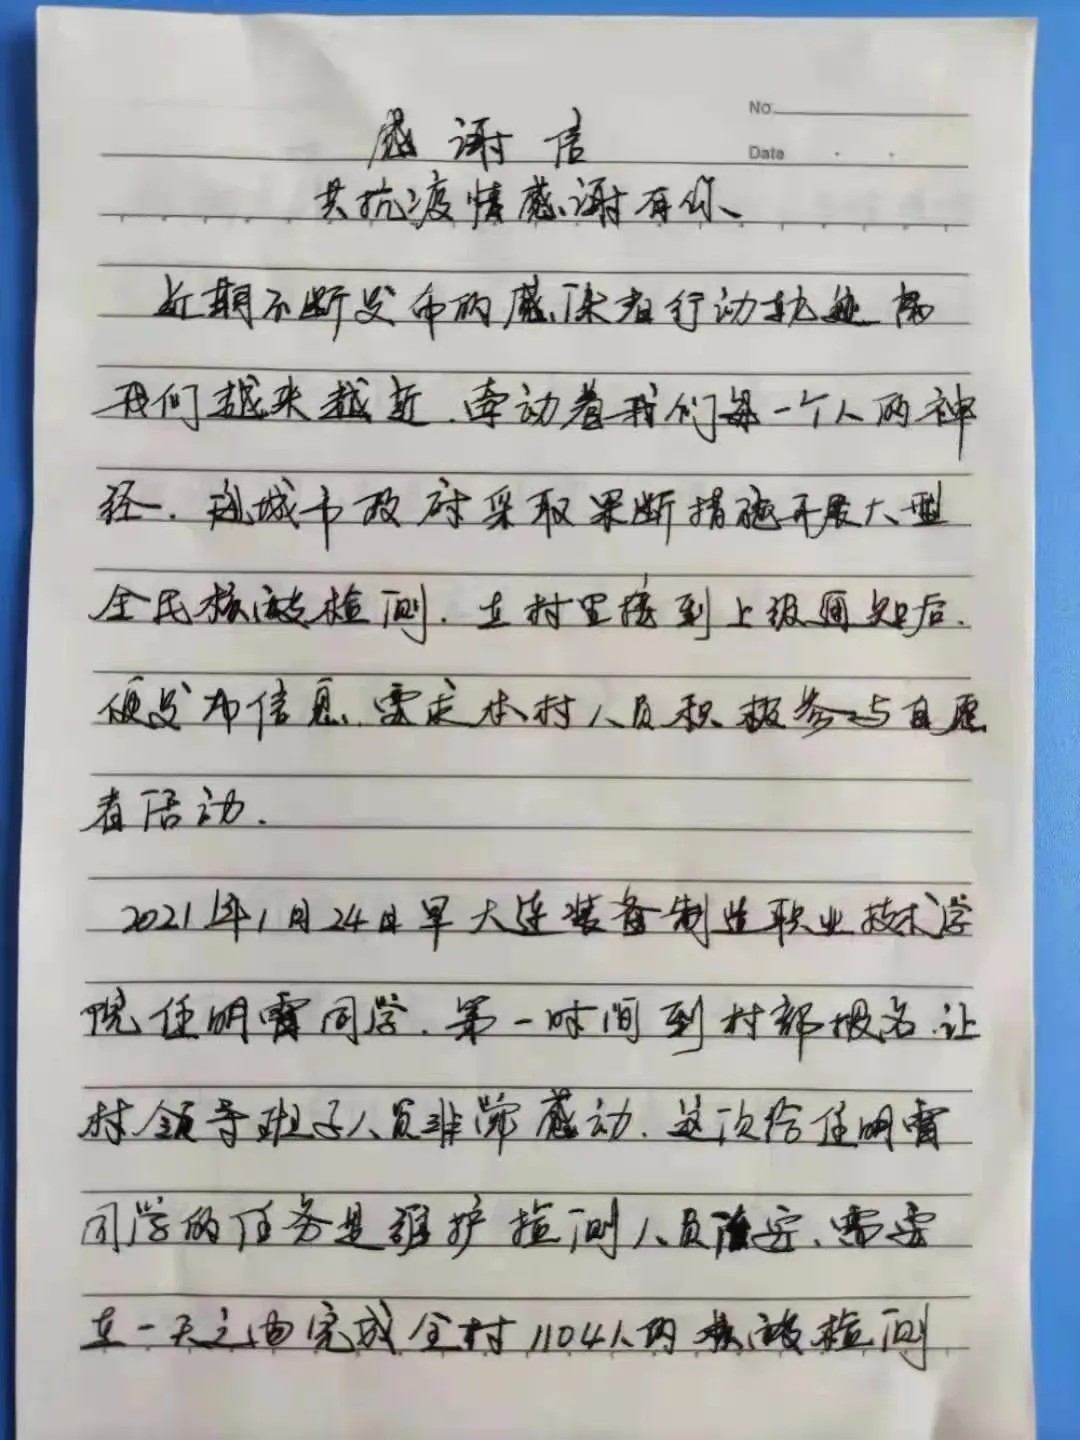 No.
感谢信
Date
共抗疫情感谢有你、
近期不断发布的感染者行动轨迹离
我们越来越近.牵动着我们每一个人的神
经.城市政府采取果断措施开展大型
全民核酸检测.在村里接到上级通知后.
便发布信息、需求本村人员积极参与自愿
者活动.
2021年1月24日早大连装备制造职业技术学
院任明雷同学.第一时间到村部报名.让
村领导班子人员非常感动.这次给任明雷
同学的任务是维护检测人员治安、需要
在一天之内完成全村1104人的核酸检测